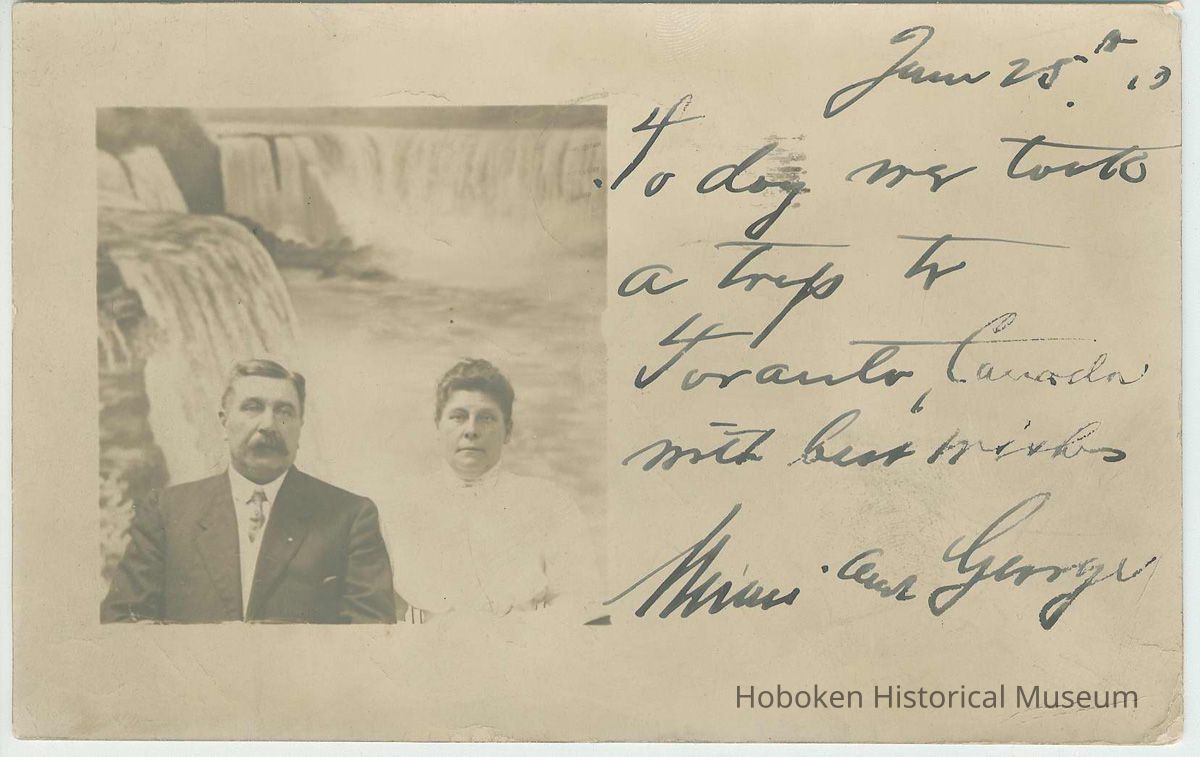 June 25th 13
To day we took
a trip to
Toronto, Canada
with best wishes
and George
Hoboken Historical Museum